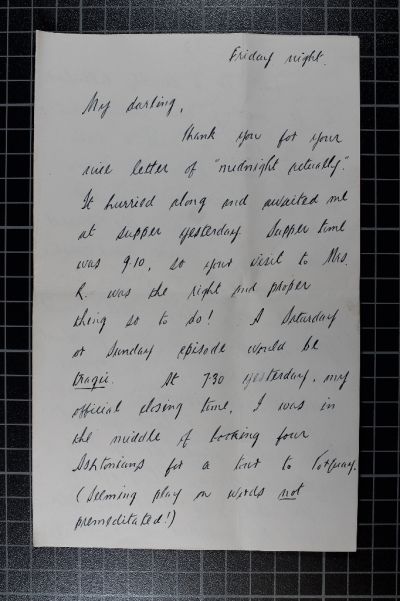 Friday night.
My darling,
Thank you for your
nice letter of "midnight actually".
It hurried along and awaited me
at supper yesterday. Supper time
was 9.10, so your visit to Mrs.
R. was the right and proper
thing so to do! A Saturday
or Sunday episode would be
tragic. At 7.30 yesterday, my
official closing time, I was in
the middle of booking four
Ashtonians for a tour to Torquay.
(Seeming play on words not
premeditated!)